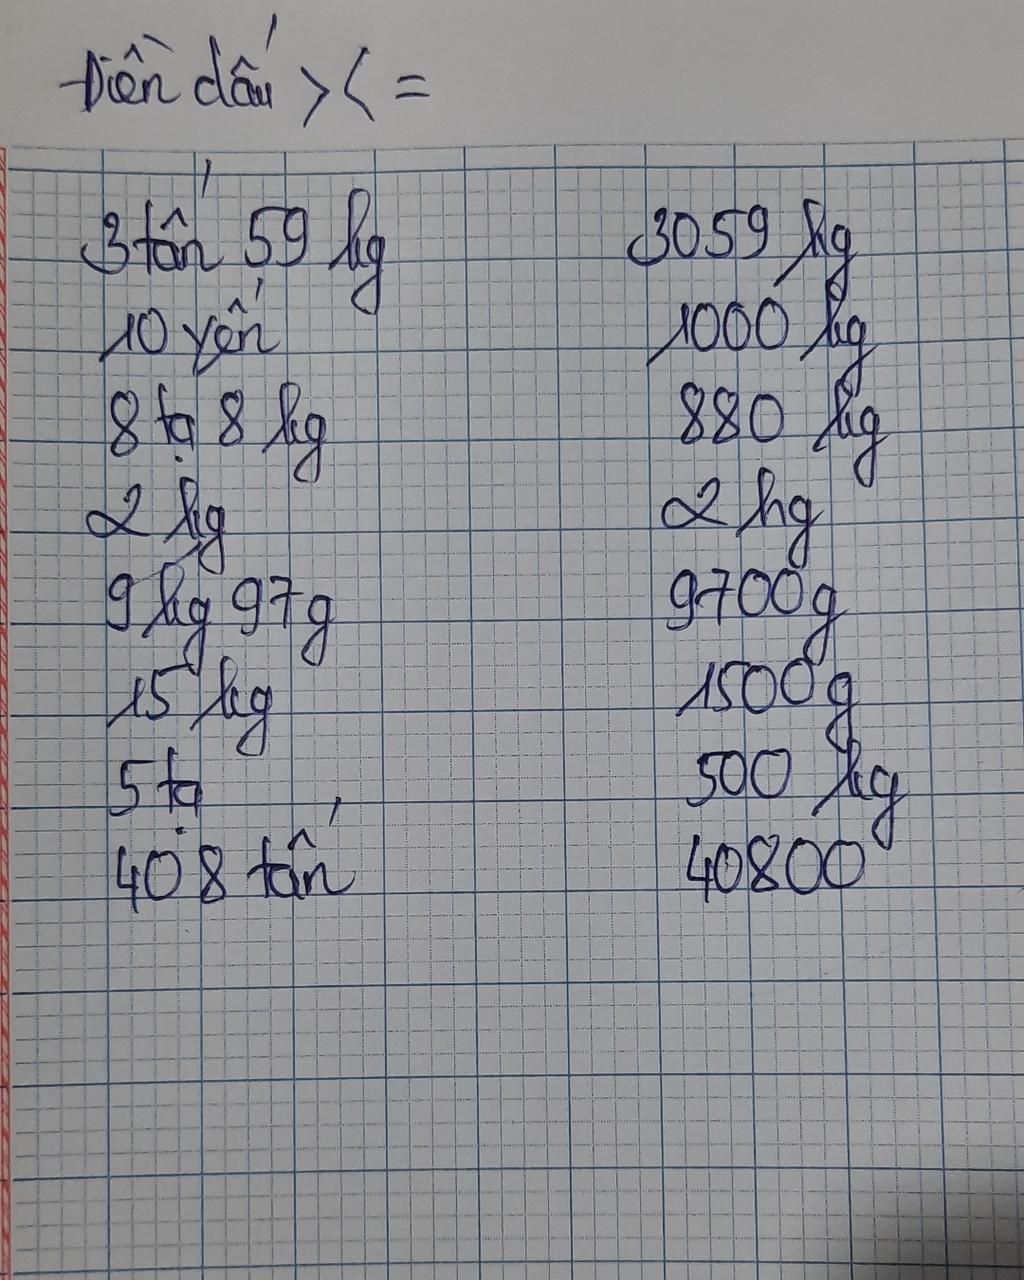 Điền dấu > < =
3 tấn 59 kg 3059 kg
10 yến 1000 kg
8 tạ 8 kg 880 kg
2 kg 2 hg
9 kg 97g 9700g
15 kg 1500g
5 tạ 500 kg
408 tấn 40800